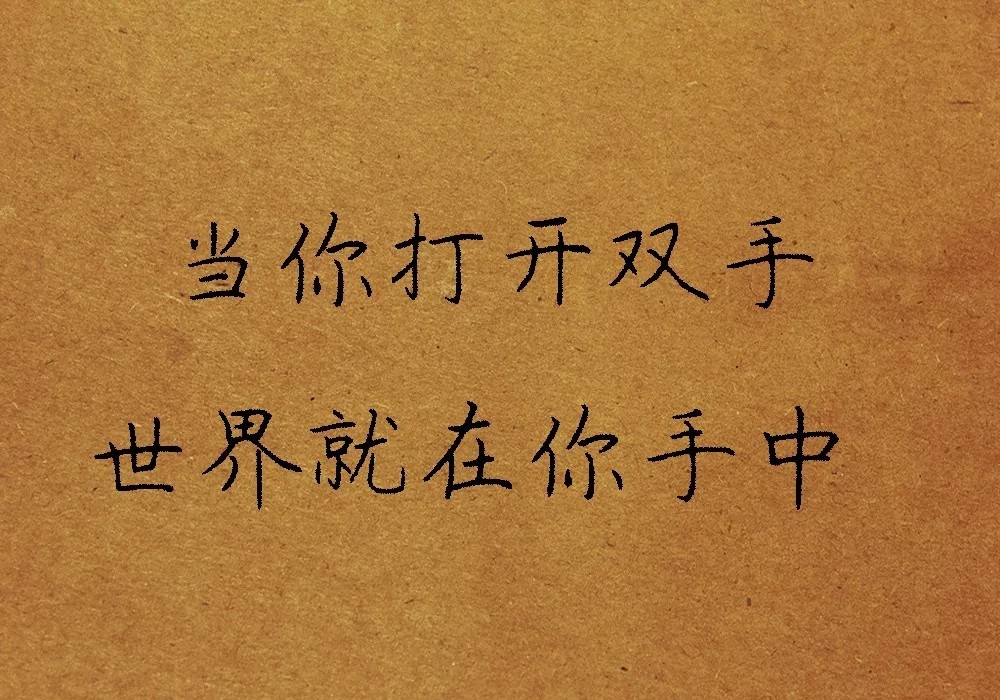 当你打开双手
世界就在你手中